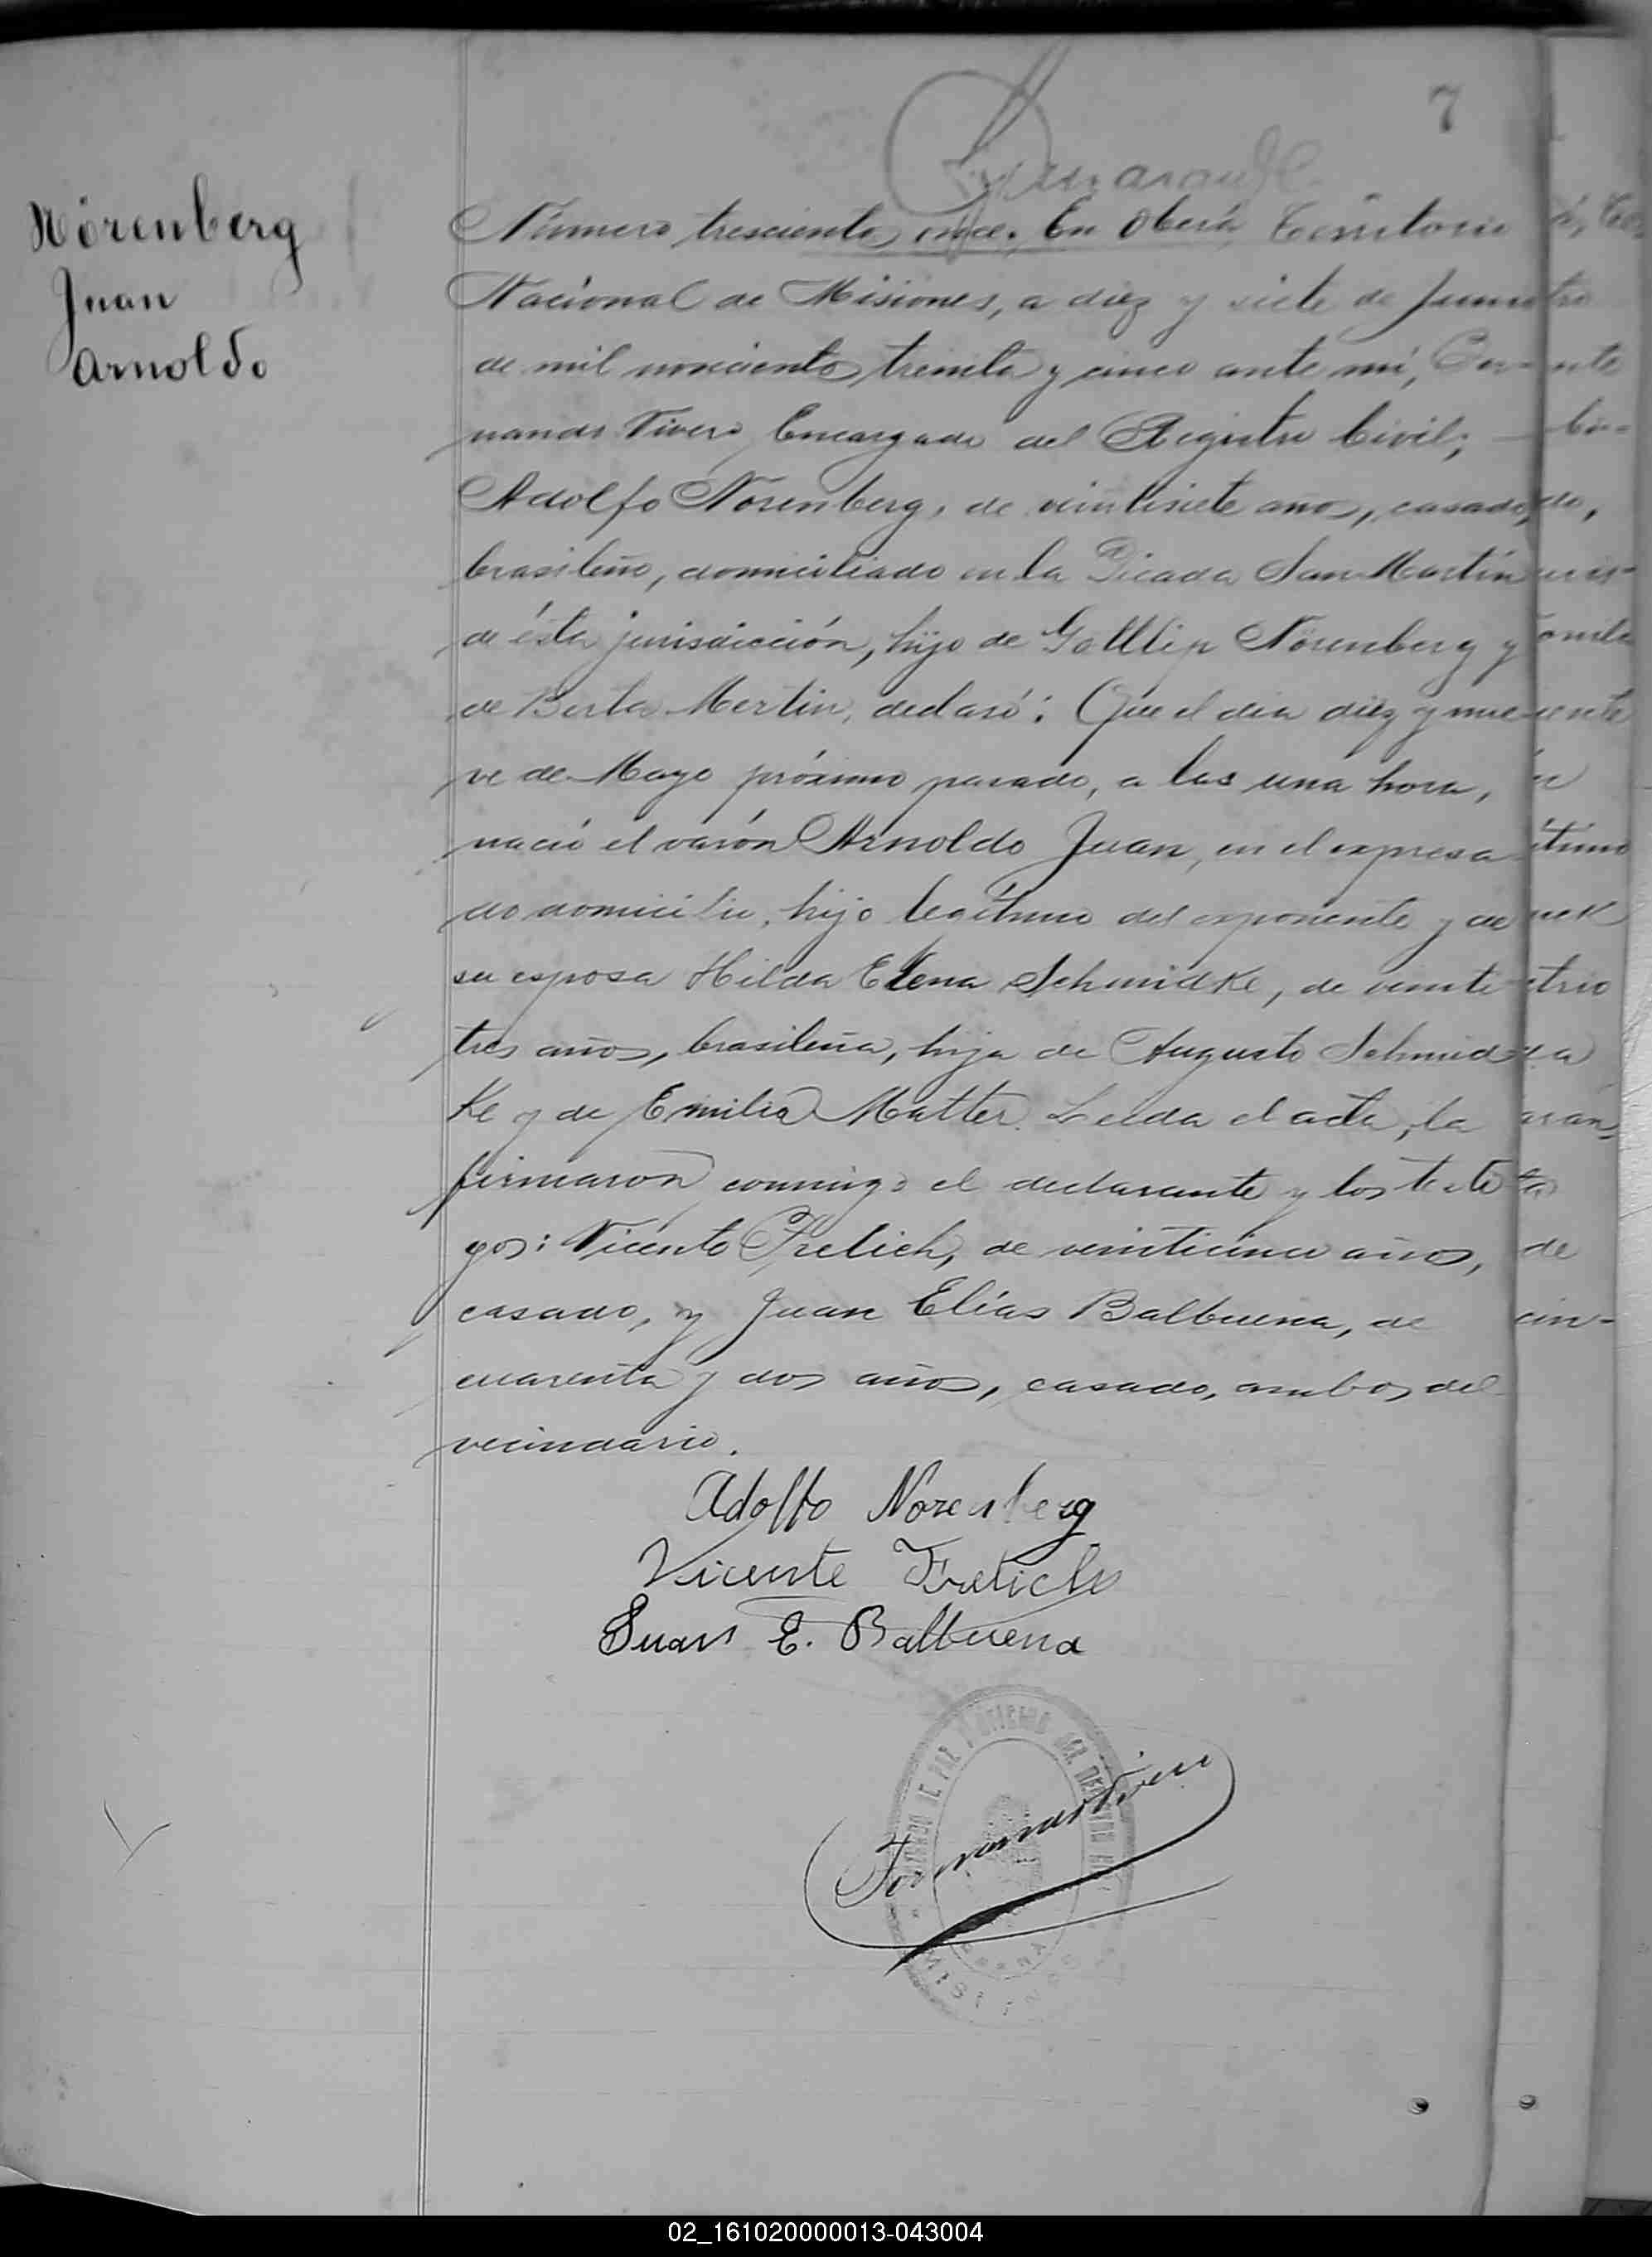 7
Nörenberg
Juan
Arnoldo
Número trescientos once. En Oberá, Territorio
Nacional de Misiones, a diez y siete de Junio
de mil novecientos treinta y cinco ante mí, Fer-
nando Vivero Encargado del Registro Civil; —
Adolfo Nörenberg, de veintisiete años, casado,
brasileño, domiciliado en la Picada San Martín
de ésta jurisdicción, hijo de Gottlip Nörenberg y
de Berta Mertin, declaró: Que el día diez y nue-
ve de Mayo próximo pasado, a las una hora,
nació el varón Arnoldo Juan, en el expresa
do domicilio, hijo legítimo del exponente y de
su esposa Hilda Elena Schmidke, de veinti
tres años, brasileña, hija de Augusto Schmid
Ke y de Emilia Matter. Leída el acta, la
firmaron conmigo el declarante y los testi
gos: Vicente Fretich, de veinticinco años,
casado, y Juan Elías Balbuena, de
cuarenta y dos años, casado, ambos del
vecindario.
Adolfo Norenberg
Vicente Fretich
Juan E. Balbuena
JUZGADO DE PAZ Y REGISTRO DEL
MISIONES
02_161020000013-043004